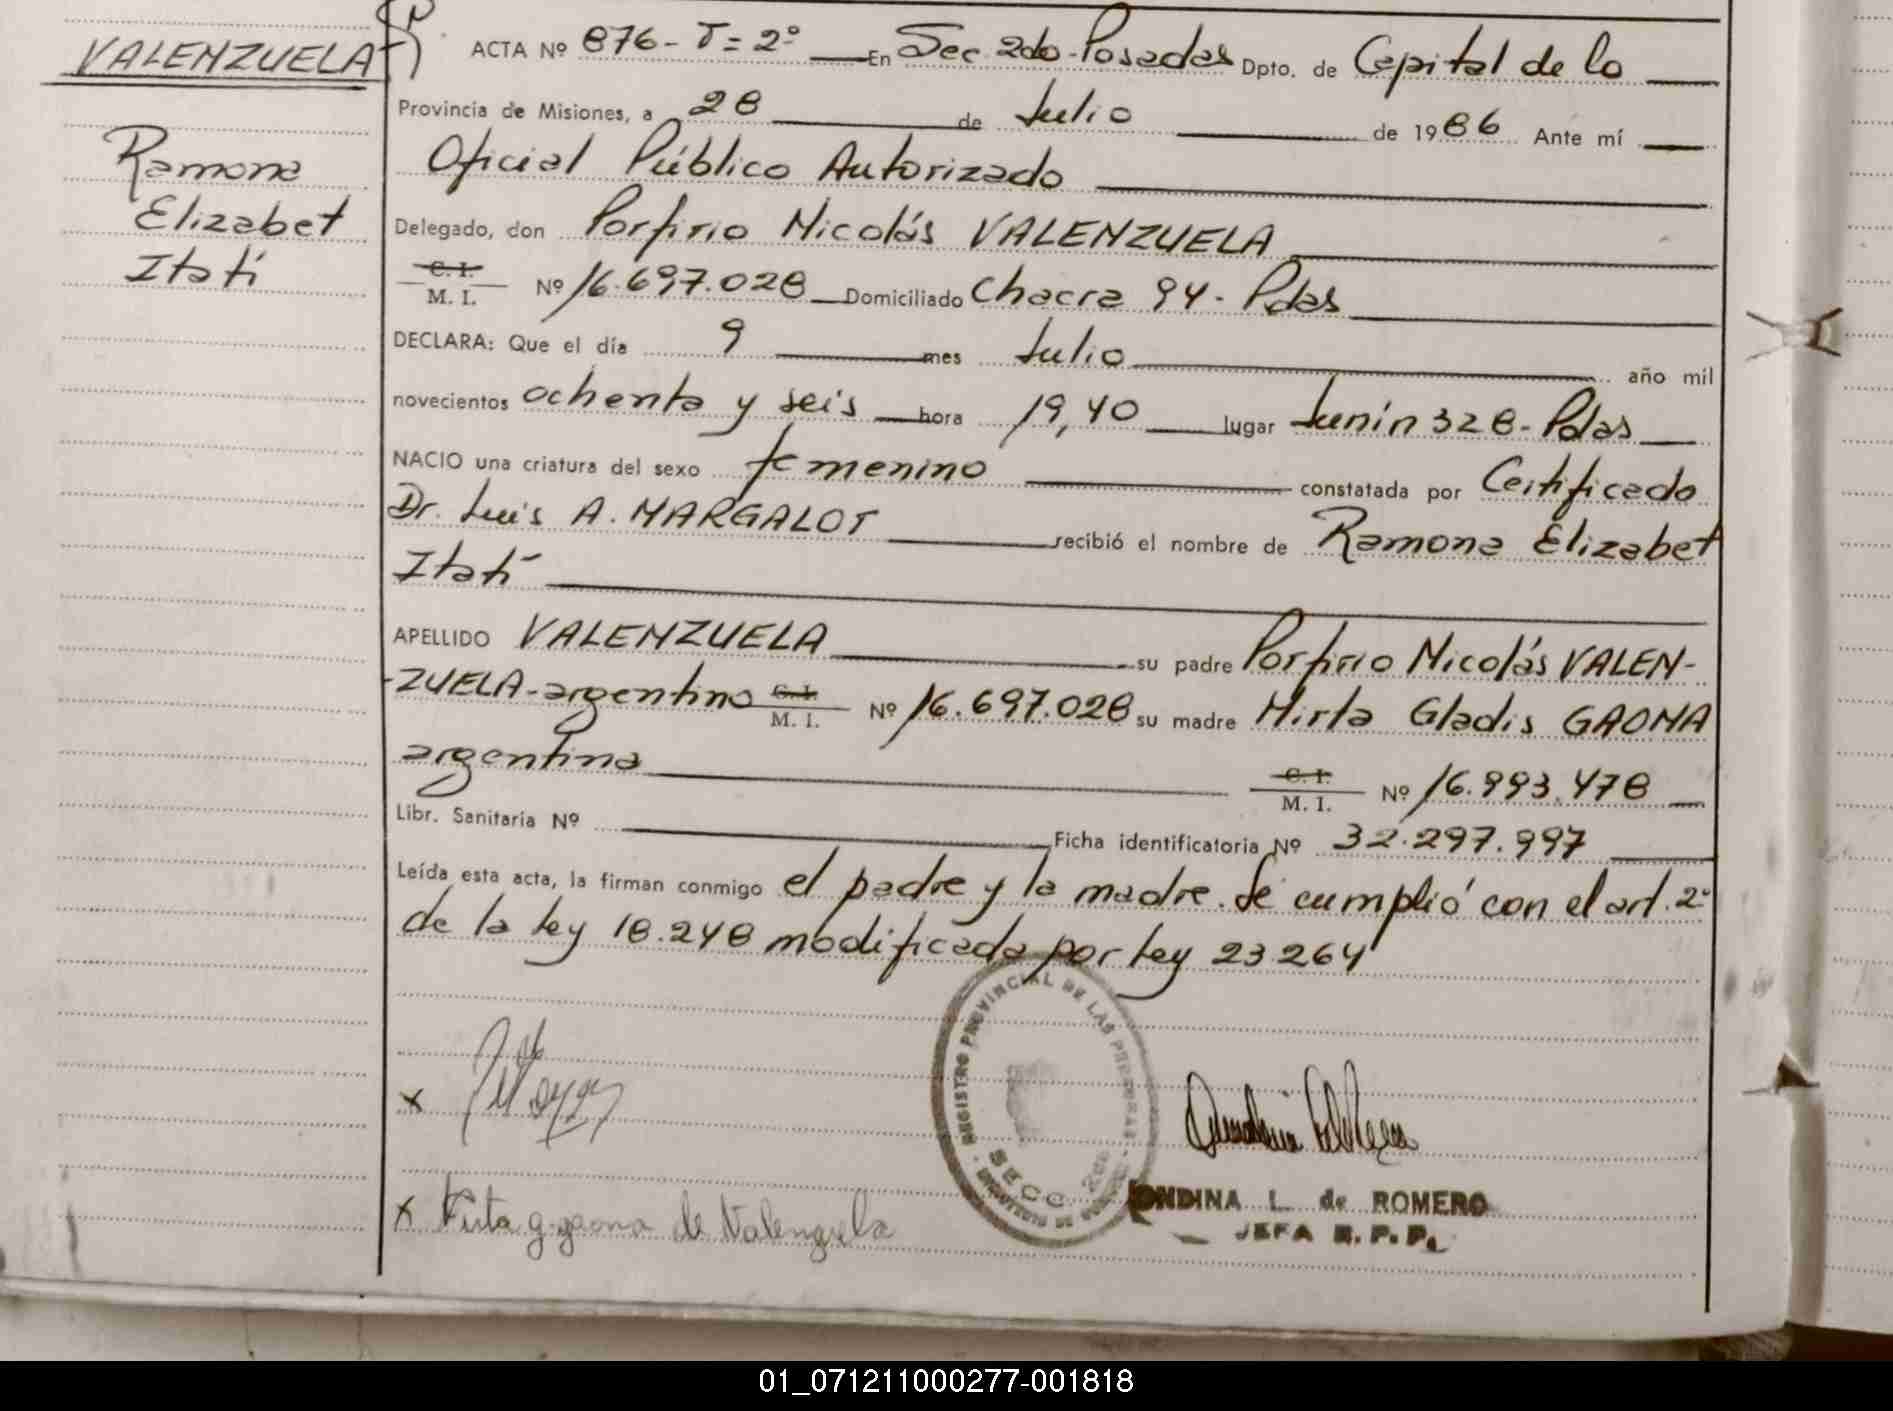 VALENZUELA
Ramona
Elizabet
Itatí
ACTA Nº 876- T= 2º En Sec. 2do-Posadas Dpto. de Capital de la
Provincia de Misiones, a 28 de Julio de 1986 Ante mí
Oficial Público Autorizado
Delegado, don Porfirio Nicolás VALENZUELA
C. I. M. I. Nº 16.697.028 Domiciliado Chacra 94- Pdas
DECLARA: Que el día 9 mes Julio año mil
novecientos ochenta y seis hora 19,40 lugar Junín 328- Pdas
NACIO una criatura del sexo femenino constatada por Certificado
Dr. Luis A. MARGALOT recibió el nombre de Ramona Elizabet
Itatí
APELLIDO VALENZUELA su padre Porfirio Nicolás VALEN-
-ZUELA-argentino C. I. M. I. Nº 16.697.028 su madre Mirta Gladis GAONA
argentina C. I. M. I. Nº 16.993.478
Libr. Sanitaria Nº Ficha identificatoria Nº 32.297.997
Leída esta acta, la firman conmigo el padre y la madre. Se cumplió con el art. 2º
de la ley 18.248 modificada por ley 23264
REGISTRO PROVINCIAL DE LAS PERSONAS
SECC. 2da
x
x Mirta g gaona de Valenzuela
ONDINA L. de ROMERO
JEFA R. P. P.
01_071211000277-001818